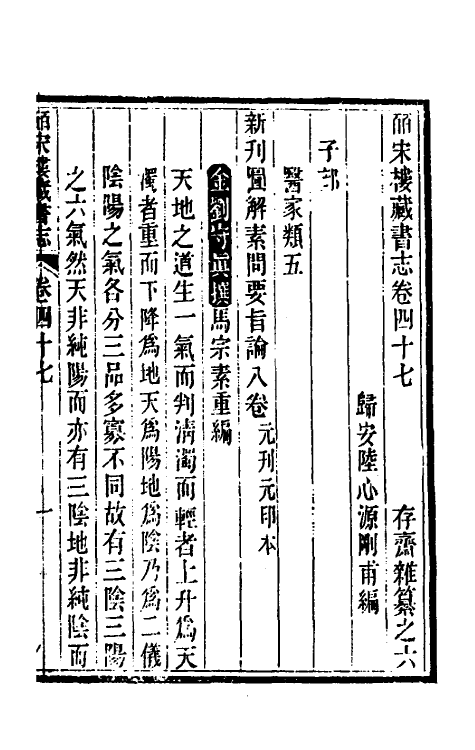 皕宋樓藏書志卷四十七　存齋雜纂之六
歸安陸心源剛甫編
子部
醫家類五
新刊圖解素問要旨論八卷元刊元印本
金劉守眞撰馬宗素重編
天地之道生一氣而判清濁而輕者上升爲天
濁者重而下降爲地天爲陽地爲陰乃爲二儀
陰陽之氣各分三品多寡不同故有三陰三陽
之六氣然天非純陽而亦有三陰地非純陰而
皕宋樓藏書志　卷四十七　一